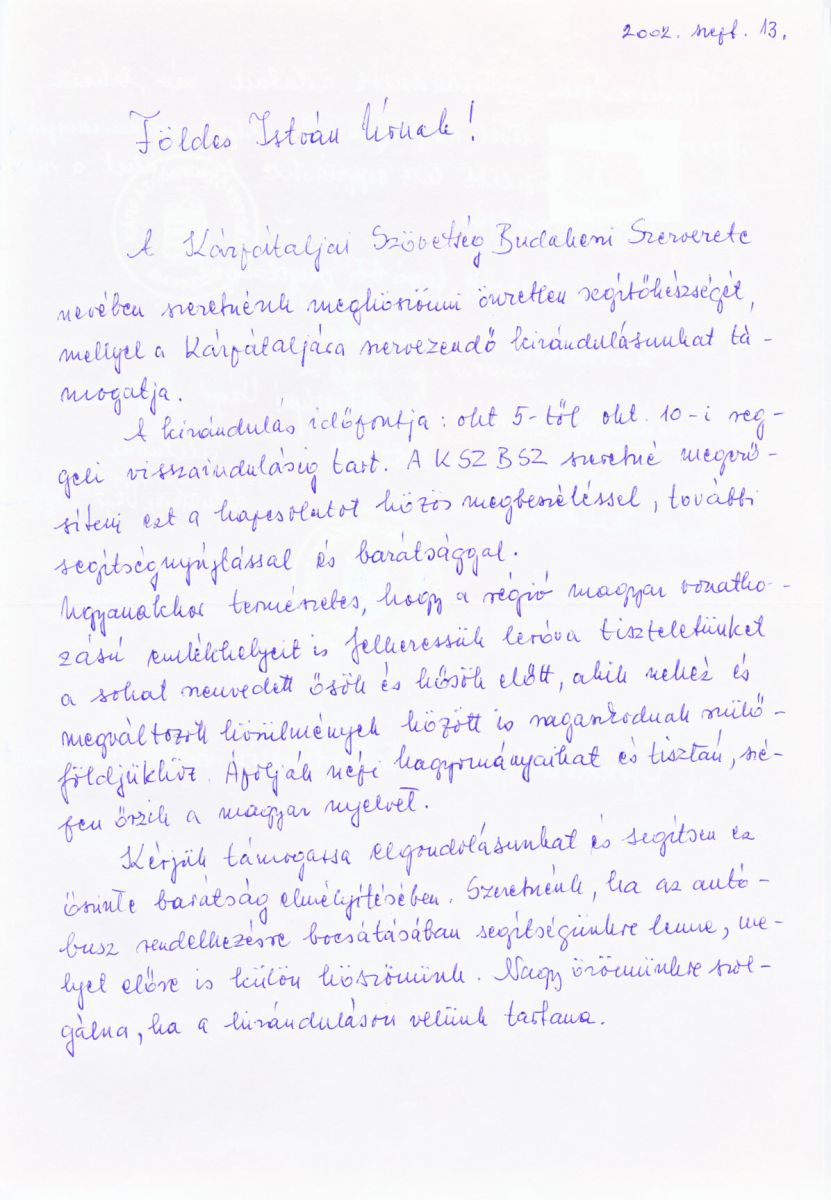 2002. szept. 13.
Földes István Úrnak!
A Kárpátaljai Szövetség Budakeszi Szervezete
nevében szeretnénk megköszönni önzetlen segítőkészségét,
mellyel a Kárpátaljára szervezendő kirándulásunkat tá-
mogatja.
A kirándulás időpontja: okt 5-től okt. 10-i reg-
geli visszaindulásig tart. A KSZBSZ szeretné megerő-
síteni ezt a kapcsolatot közös megbeszéléssel, további
segítségnyújtással és barátsággal.
Ugyanakkor természetes, hogy a régió magyar vonatko-
zású emlékhelyeit is felkeressük leróva tiszteletünket
a sokat szenvedett ősök és hősök előtt, akik nehéz és
megváltozott körülmények között is ragaszkodnak szülő-
földjükhöz. Ápolják népi hagyományaikat és tisztán, szé-
pen őrzik a magyar nyelvet.
Kérjük támogassa elgondolásunkat és segítsen ez
őszinte barátság elmélyítésében. Szeretnénk, ha az autó-
busz rendelkezésre bocsátásában segítségünkre lenne, me-
lyet előre is külön köszönünk. Nagy örömünkre szol-
gálna, ha a kiránduláson velünk tartana.